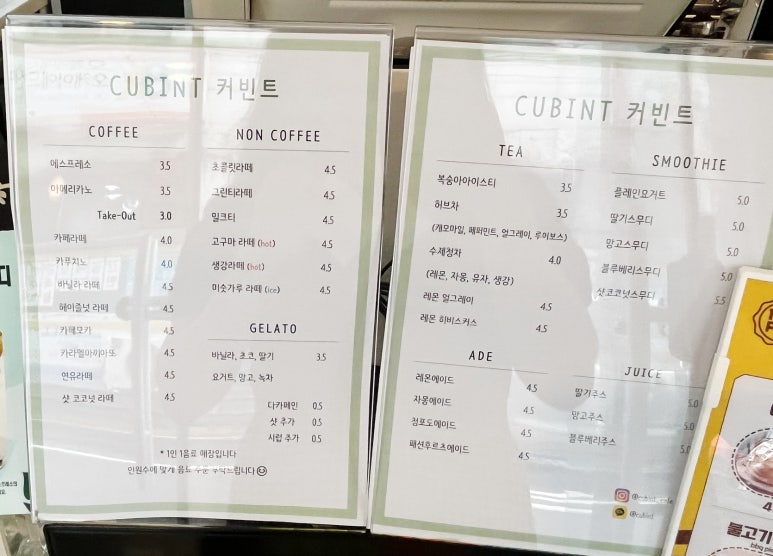 CUBINT 커빈트
COFFEE
에스프레소 3.5
아메리카노 3.5
Take-Out 3.0
카페라떼 4.0
카푸치노 4.0
바닐라 라떼 4.5
헤이즐넛 라떼 4.5
카페모카 4.5
카라멜마끼아또 4.5
연유라떼 4.5
샷 코코넛 라떼 4.5
NON COFFEE
초콜릿라떼 4.5
그린티라떼 4.5
밀크티 4.5
고구마 라떼 (hot) 4.5
생강라떼 (hot) 4.5
미숫가루 라떼 (ice) 4.5
GELATO
바닐라, 초코, 딸기 3.5
요거트, 망고, 녹차
디카페인 0.5
샷 추가 0.5
시럽 추가 0.5
* 1인 1음료 매장입니다
인원수에 맞게 음료 주문 부탁드립니다
CUBINT 커빈트
TEA
복숭아아이스티 3.5
허브차 3.5
(캐모마일, 페퍼민트, 얼그레이, 루이보스)
수제청차 4.0
(레몬, 자몽, 유자, 생강)
레몬 얼그레이 4.5
레몬 히비스커스 4.5
ADE
레몬에이드 4.5
자몽에이드 4.5
청포도에이드 4.5
패션후르츠에이드 4.5
SMOOTHIE
플레인요거트 5.0
딸기스무디 5.0
망고스무디 5.0
블루베리스무디 5.0
샷코코넛스무디 5.5
JUICE
딸기주스 5.0
망고주스 5.0
블루베리주스 5.0
불고기